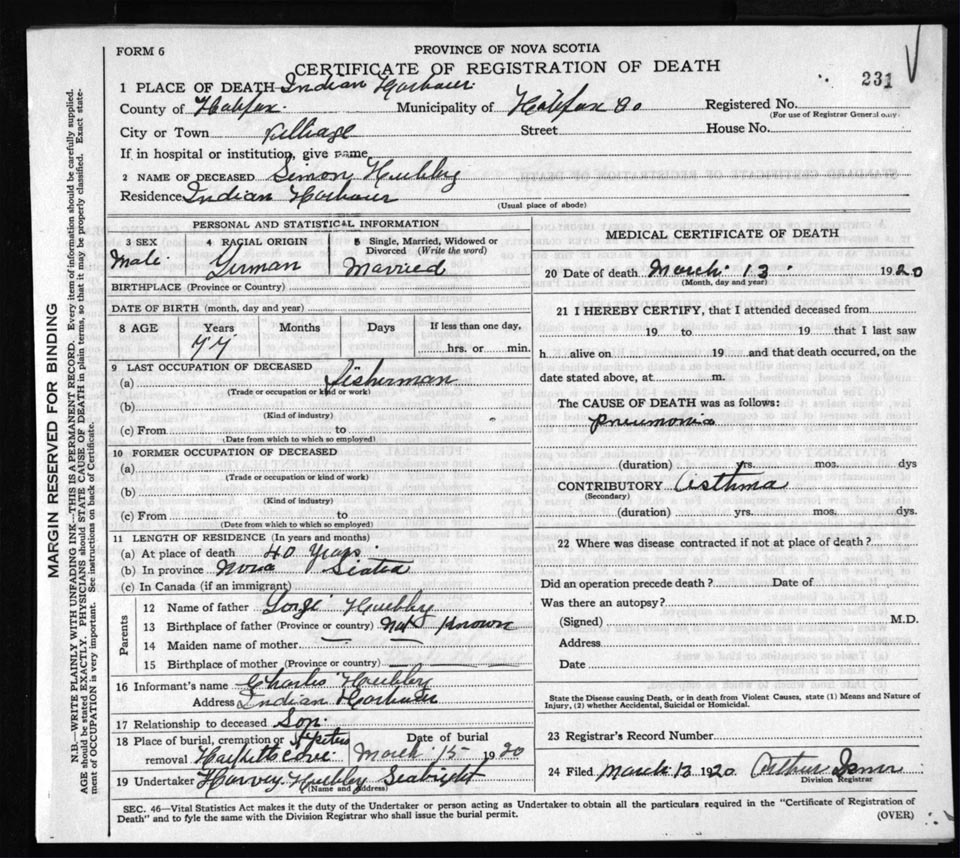 FORM 6
PROVINCE OF NOVA SCOTIA
CERTIFICATE OF REGISTRATION OF DEATH
231
1 PLACE OF DEATH Indian Harbour
County of Halifax. Municipality of Halifax Co Registered No.
(For use of Registrar General only)
City or Town Village Street House No.
If in hospital or institution, give name
2 NAME OF DECEASED Simon Hubley
Residence Indian Harbour
(Usual place of abode)
PERSONAL AND STATISTICAL INFORMATION
3 SEX 4 RACIAL ORIGIN 5 Single, Married, Widowed or Divorced (Write the word)
Male. German Married
BIRTHPLACE (Province or Country)
DATE OF BIRTH (month, day and year)
8 AGE Years Months Days If less than one day,
77 hrs. or min.
9 LAST OCCUPATION OF DECEASED
(a) fisherman
(Trade or occupation or kind of work)
(b)
(Kind of industry)
(c) From to
(Date from which to which so employed)
10 FORMER OCCUPATION OF DECEASED
(a)
(Trade or occupation or kind of work)
(b)
(Kind of industry)
(c) From to
(Date from which to which so employed)
11 LENGTH OF RESIDENCE (In years and months)
(a) At place of death 40 Years
(b) In province Nova Scotia
(c) In Canada (if an immigrant)
Parents
12 Name of father Hubley
13 Birthplace of father (Province or country) not Known
14 Maiden name of mother
15 Birthplace of mother (Province or country)
16 Informant's name Charles Hubley
Address Indian Harbour
17 Relationship to deceased Son.
18 Place of burial, cremation or removal St Peters Date of burial
Hacketts Cove March 15 1920
19 Undertaker Harvey Hubley Seabright
(Name and Address)
MEDICAL CERTIFICATE OF DEATH
20 Date of death March 13 1920
(Month, day and year)
21 I HEREBY CERTIFY, that I attended deceased from
19 to 19 that I last saw
h alive on 19 and that death occurred, on the
date stated above, at m.
The CAUSE OF DEATH was as follows:
pneumonia
(duration) yrs. mos. dys
CONTRIBUTORY Asthma
(Secondary)
(duration) yrs. mos. dys.
22 Where was disease contracted if not at place of death?
Did an operation precede death? Date of
Was there an autopsy?
(Signed) M.D.
Address
Date
State the Disease causing Death, or in death from Violent Causes, state (1) Means and Nature of
Injury, (2) whether Accidental, Suicidal or Homicidal.
23 Registrar's Record Number
24 Filed March 13 1920. Arthur
Division Registrar
SEC. 46—Vital Statistics Act makes it the duty of the Undertaker or person acting as Undertaker to obtain all the particulars required in the "Certificate of Registration of
Death" and to fyle the same with the Division Registrar who shall issue the burial permit.
(OVER)
MARGIN RESERVED FOR BINDING
N.B.—WRITE PLAINLY WITH UNFADING INK—THIS IS A PERMANENT RECORD. Every item of information should be carefully supplied.
AGE should be stated EXACTLY. PHYSICIANS should STATE CAUSE OF DEATH in plain terms, so that it may be properly classified. Exact state-
ment of OCCUPATION is very important. See instructions on back of Certificate.